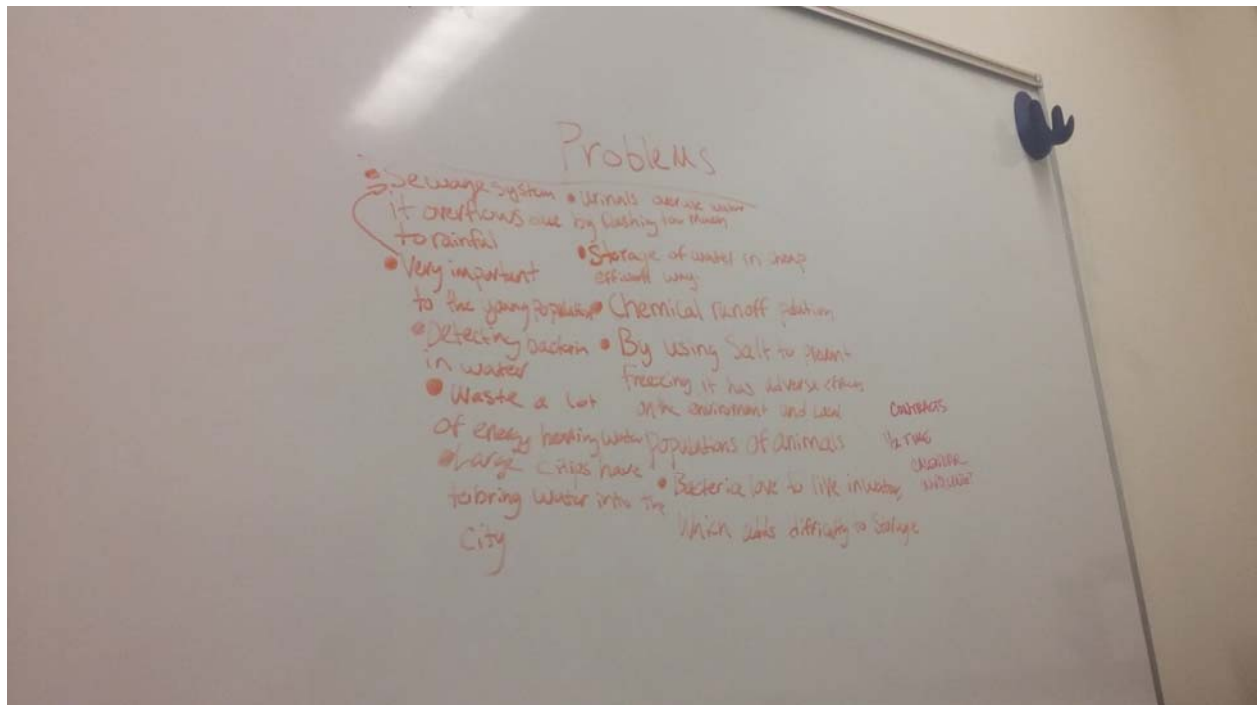 Problems
• Sewage system
it overflows due
to rainful
• Very important
to the young population
• Detecting bacteria
in water
• Waste a lot
of energy heating water
• Large cities have
to bring water into the
City
• Urinals overuse water
by flushing too much
• Storage of water in cheap
efficient way
• Chemical runoff
• By using Salt to prevent
freezing it has adverse effects
on the enviroment and
populations of animals
• Bacteria love to live in water,
Which adds difficulty to Storage
CONTRACTS
1/2 TIME